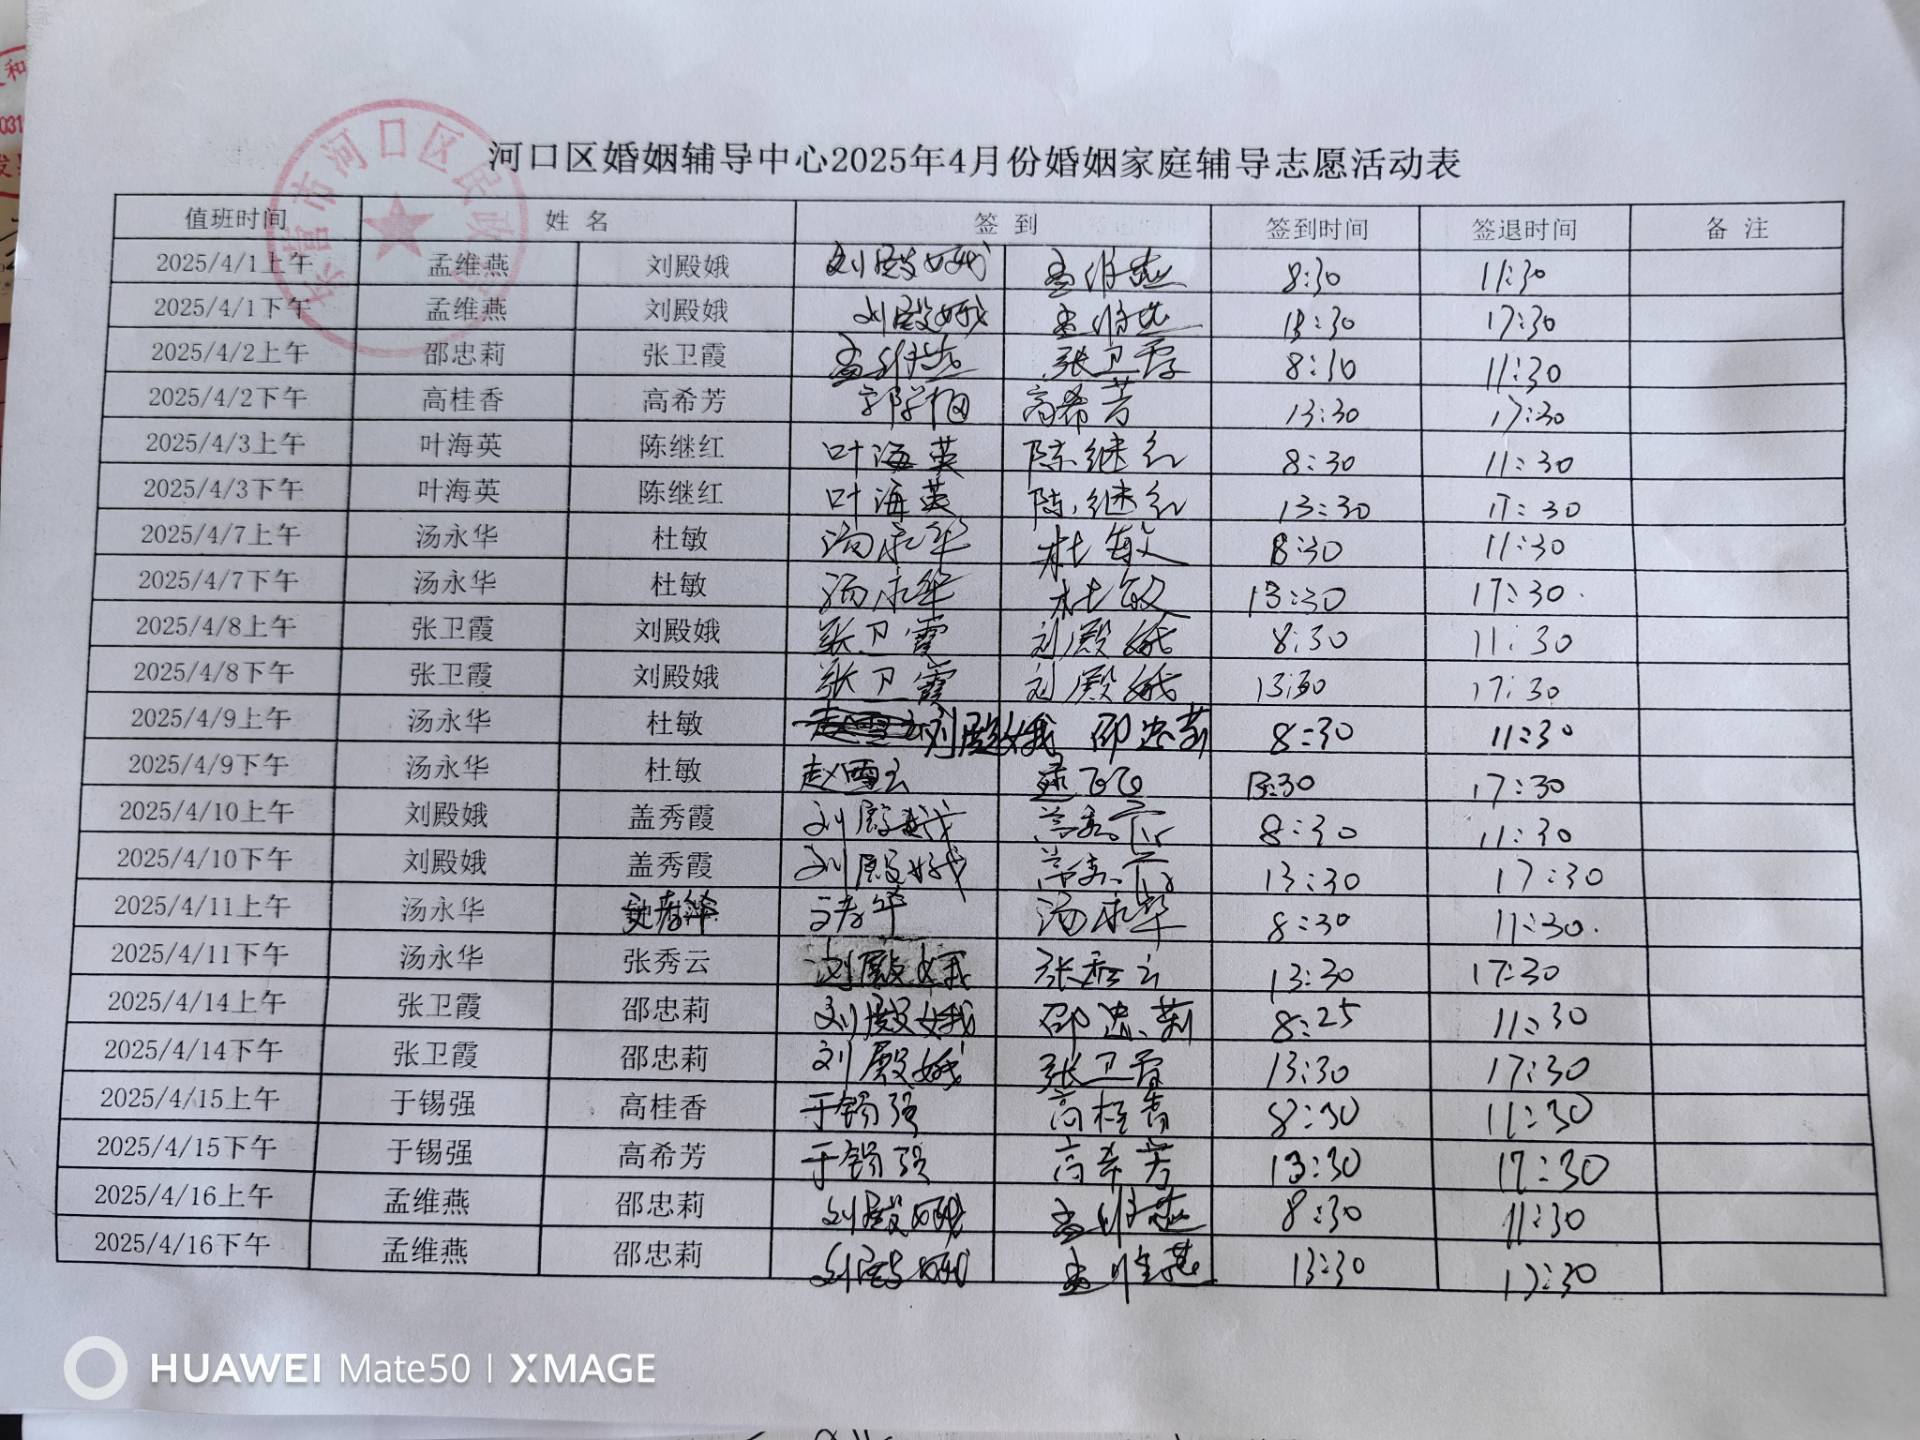 河口区婚姻辅导中心2025年4月份婚姻家庭辅导志愿活动表
值班时间 姓 名 签 到 签到时间 签退时间 备 注
2025/4/1上午 孟维燕 刘殿娥 刘殿娥 孟维燕 8:30 11:30
2025/4/1下午 孟维燕 刘殿娥 刘殿娥 孟维燕 13:30 17:30
2025/4/2上午 邵忠莉 张卫霞 孟维燕 张卫霞 8:30 11:30
2025/4/2下午 高桂香 高希芳 高希芳 13:30 17:30
2025/4/3上午 叶海英 陈继红 叶海英 陈继红 8:30 11:30
2025/4/3下午 叶海英 陈继红 叶海英 陈继红 13:30 17:30
2025/4/7上午 汤永华 杜敏 汤永华 杜敏 8:30 11:30
2025/4/7下午 汤永华 杜敏 汤永华 杜敏 13:30 17:30
2025/4/8上午 张卫霞 刘殿娥 张卫霞 刘殿娥 8:30 11:30
2025/4/8下午 张卫霞 刘殿娥 张卫霞 刘殿娥 13:30 17:30
2025/4/9上午 汤永华 杜敏 刘殿娥 邵忠莉 8:30 11:30
2025/4/9下午 汤永华 杜敏 赵雪云 13:30 17:30
2025/4/10上午 刘殿娥 盖秀霞 刘殿娥 盖秀霞 8:30 11:30
2025/4/10下午 刘殿娥 盖秀霞 刘殿娥 盖秀霞 13:30 17:30
2025/4/11上午 汤永华 汤永华 8:30 11:30
2025/4/11下午 汤永华 张秀云 刘殿娥 张秀云 13:30 17:30
2025/4/14上午 张卫霞 邵忠莉 刘殿娥 邵忠莉 8:25 11:30
2025/4/14下午 张卫霞 邵忠莉 刘殿娥 张卫霞 13:30 17:30
2025/4/15上午 于锡强 高桂香 于锡强 高桂香 8:30 11:30
2025/4/15下午 于锡强 高希芳 于锡强 高希芳 13:30 17:30
2025/4/16上午 孟维燕 邵忠莉 刘殿娥 孟维燕 8:30 11:30
2025/4/16下午 孟维燕 邵忠莉 刘殿娥 孟维燕 13:30 17:30
HUAWEI Mate50 | XMAGE